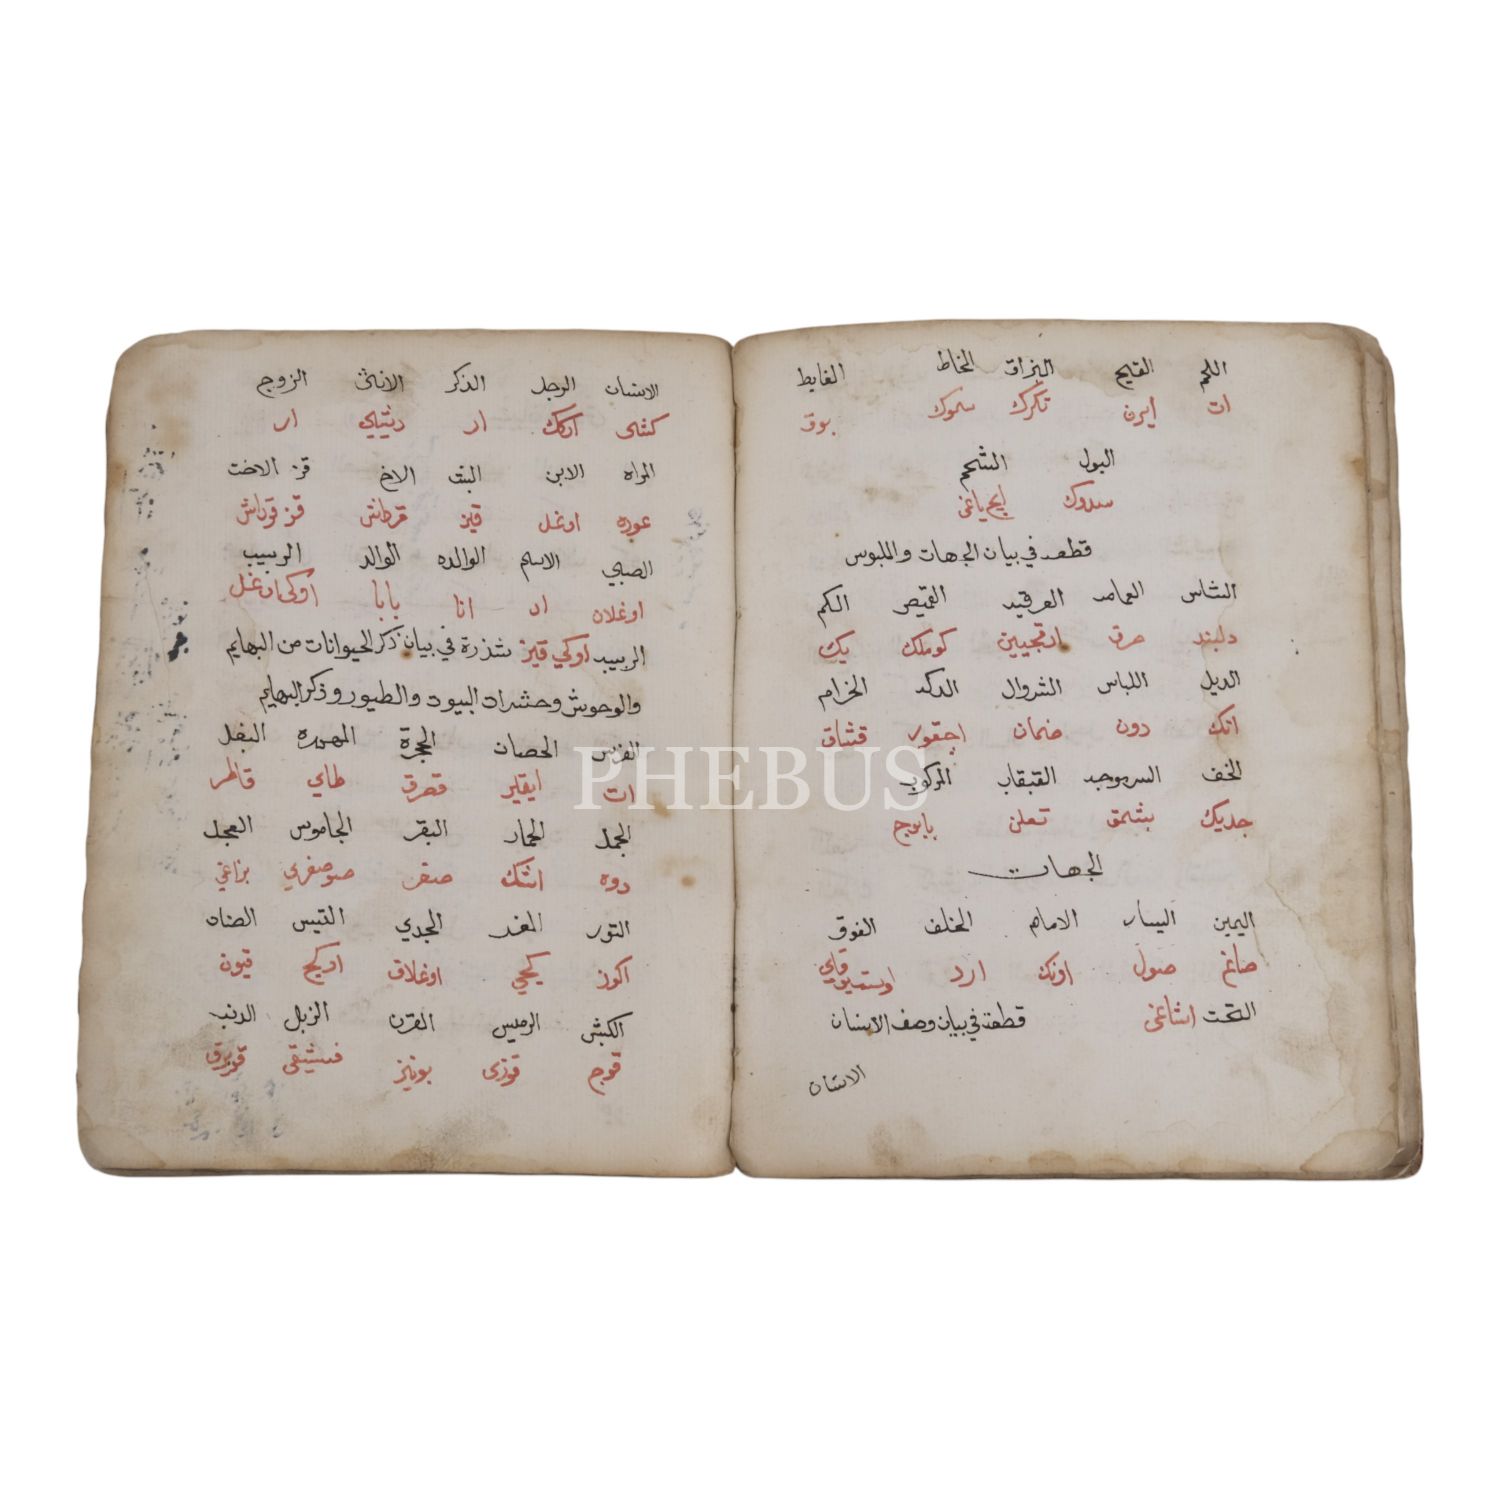 اللحم القيح البزاق المخاط الغايط
ات ايرن تكرك سموك بوق
البول الشحم
سدوك ايچ ياغى
قطعه في بيان الجهات والملبوس
الشاش العمامه العرقيه القميص الكم
دلبند صرق كوملك يك
الديل اللباس الشروال الدكه الخزام
اتك دون اچقور قشاق
الخف السرموجه القبقاب المركوب
جديك بشمق نعلن بابوج
الجهات
اليمين اليسار الامام الخلف الفوق
صاغ صول اونك ارد
التحت اشاغى قطعة في بيان وصف الانسان
الانسان
الانسان الرجل الذكر الانثى الزوج
كشى اركك ار ديشي ار
المراه الابن البنت الاخ الاخت
عوره اوغل قيز قرداش قز قرداش
الصبي الاسم الوالده الوالد الربيب
اوغلاه اد انا بابا اوكى اوغل
الربيبه اوكي قيز شذرة في بيان ذكر الحيوانات من البهايم
والوحوش وحشرات البيوت والطيور وذكر البهايم
الفرس الحصان الحجرة المهره البغل
ات ايقير قصرق طاي قاطر
الجمل الحمار البقر الجاموس العجل
دوه اشك صغر صو صغري بزاغي
التور المعز الجدي التيس الضاه
اكوز كيجي اوغلاق اركج قيون
الكبش الرميس القرن الزبل الدنب
قوج قوزى بوينز فشقى قويرق
PHEBUS